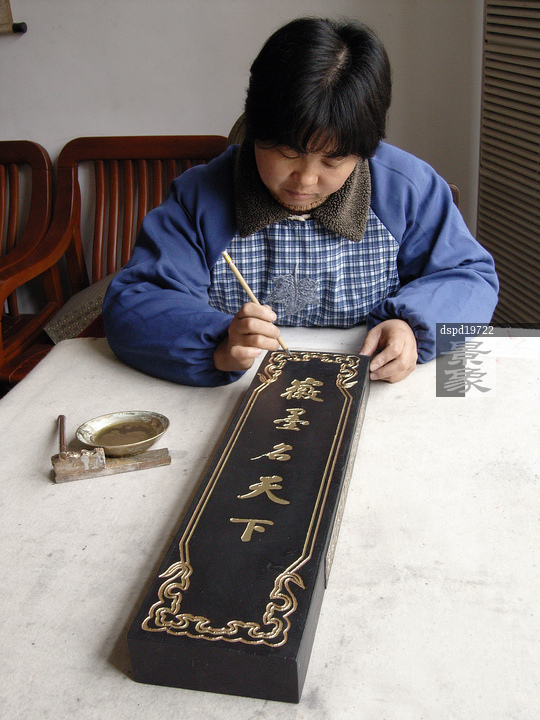 徽墨名天下
dspd19722
景象